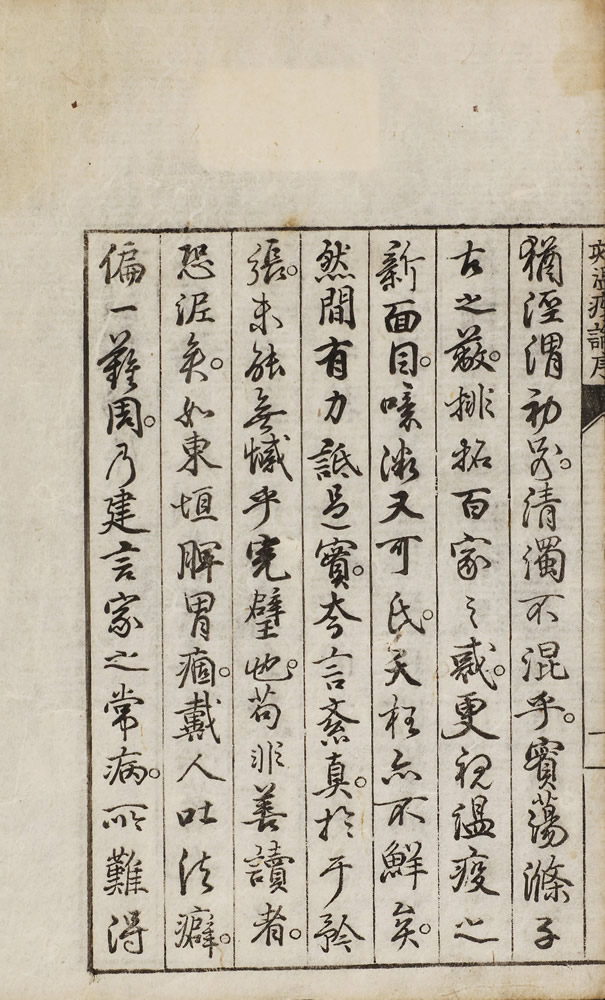 温疫論序
猶涇渭初別。清濁不混乎。實蕩滌千
古之蔽。排拓百家之惑。更視温疫之
新面目。噫微又可氏。夭枉亦不鮮矣。
然間有力詆過實。夸言紊真。於乎矜
張。未能無憾乎完璧也。苟非善讀者。
恐泥矣。如東垣脾胃痼。戴人吐法癖。
偏一難周。乃建言家之常病。所難得